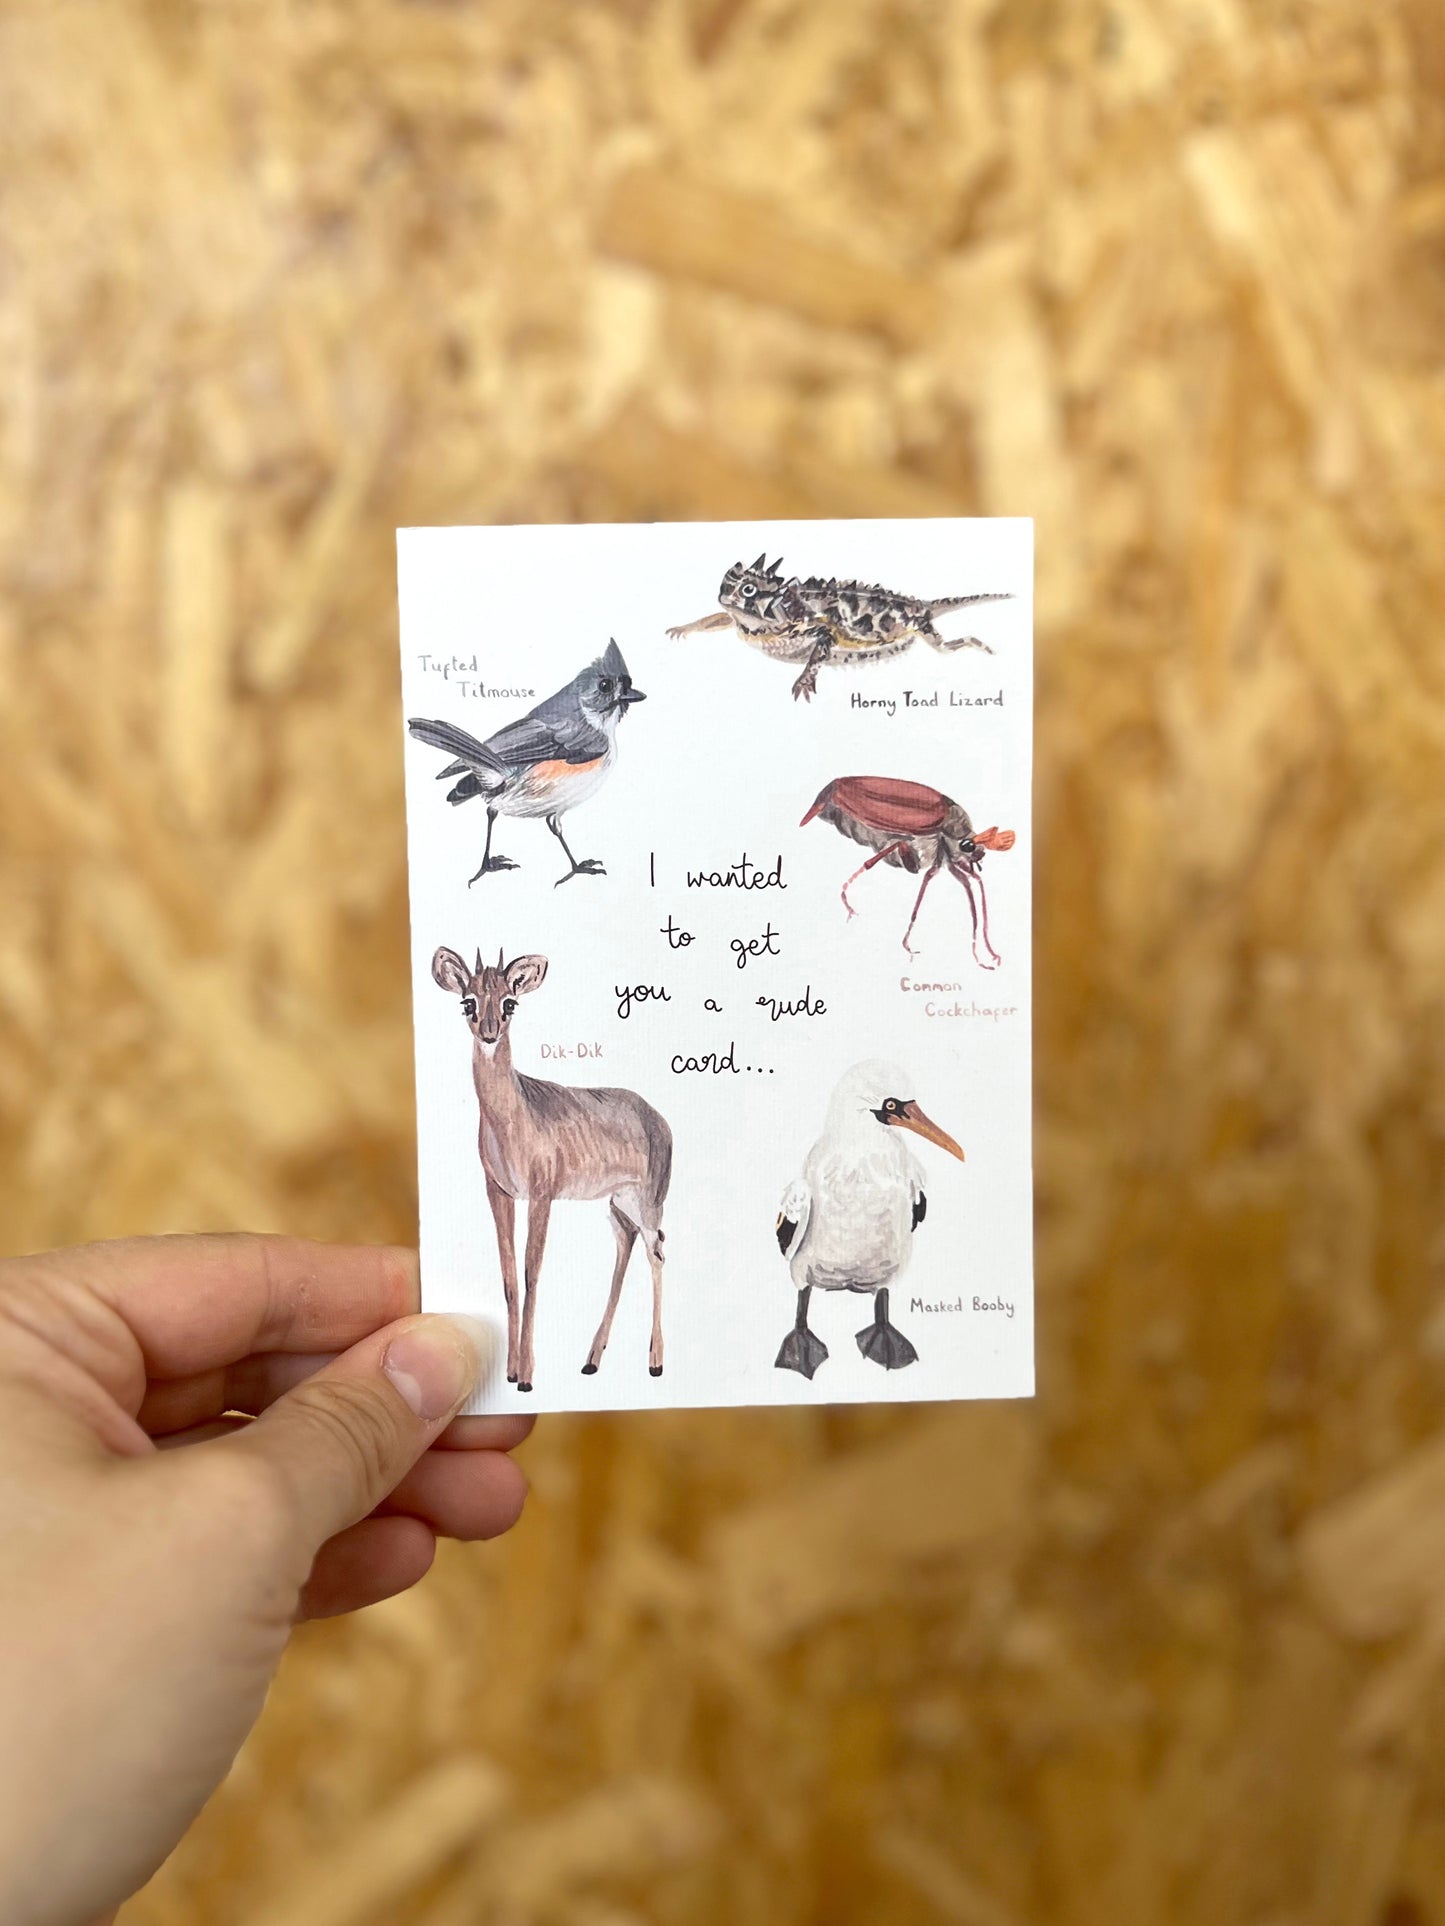 Tufted
Titmouse
Horny Toad Lizard
I wanted
to get
you a rude
card...
Common
Cockchafer
Dik-Dik
Masked Booby